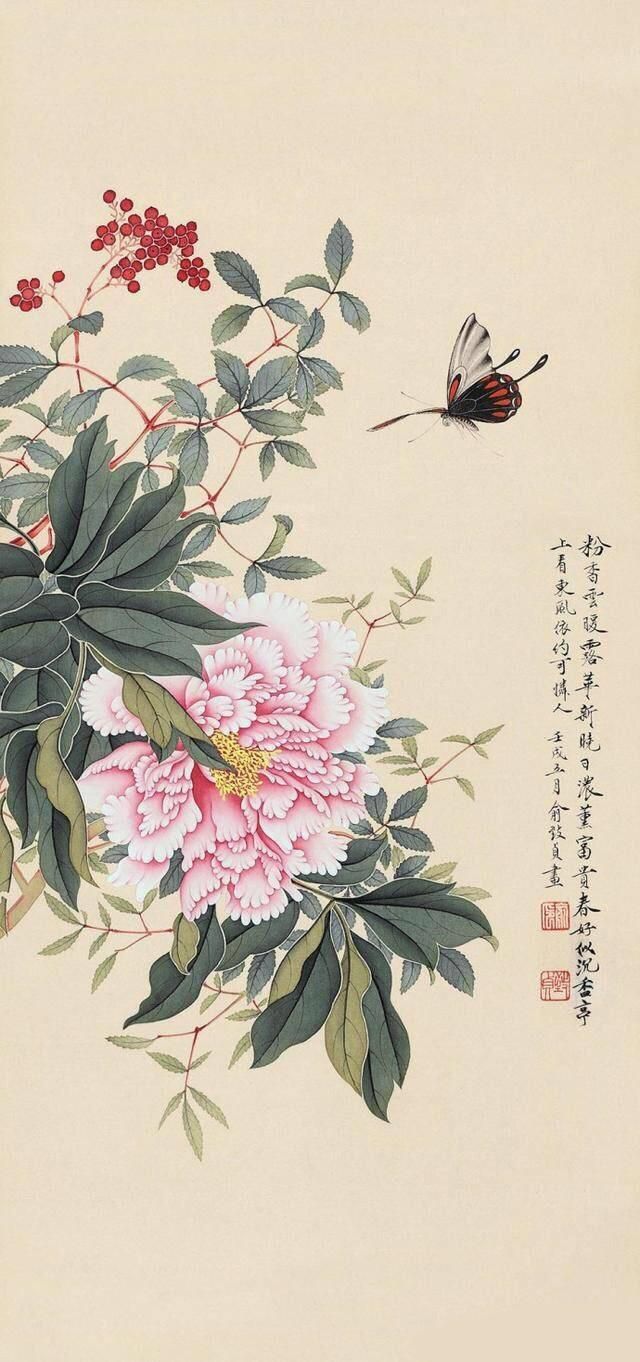 粉香雲暖露華新曉日濃薰富貴春好似沉香亭
上看東風依約可憐人 壬戌五月俞致貞畫